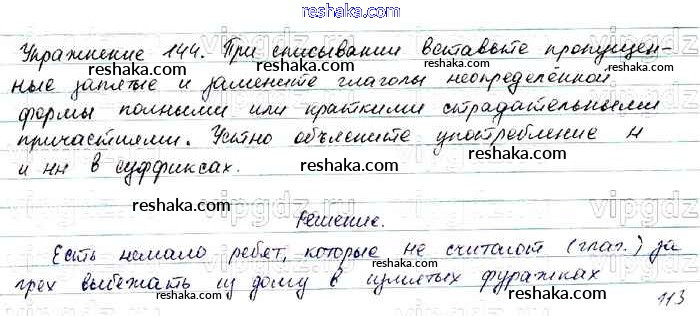 reshaka.com
Упражнение 144. При списывании вставьте пропущен-
ные запятые и замените глаголы неопределённой
формы полными или краткими страдательными
причастиями. Устно объясните употребление н
и нн в суффиксах.
Решение.
Есть немало ребят, которые не считают (глаг.) за
грех выбежать из дому в измятых фуражках
113